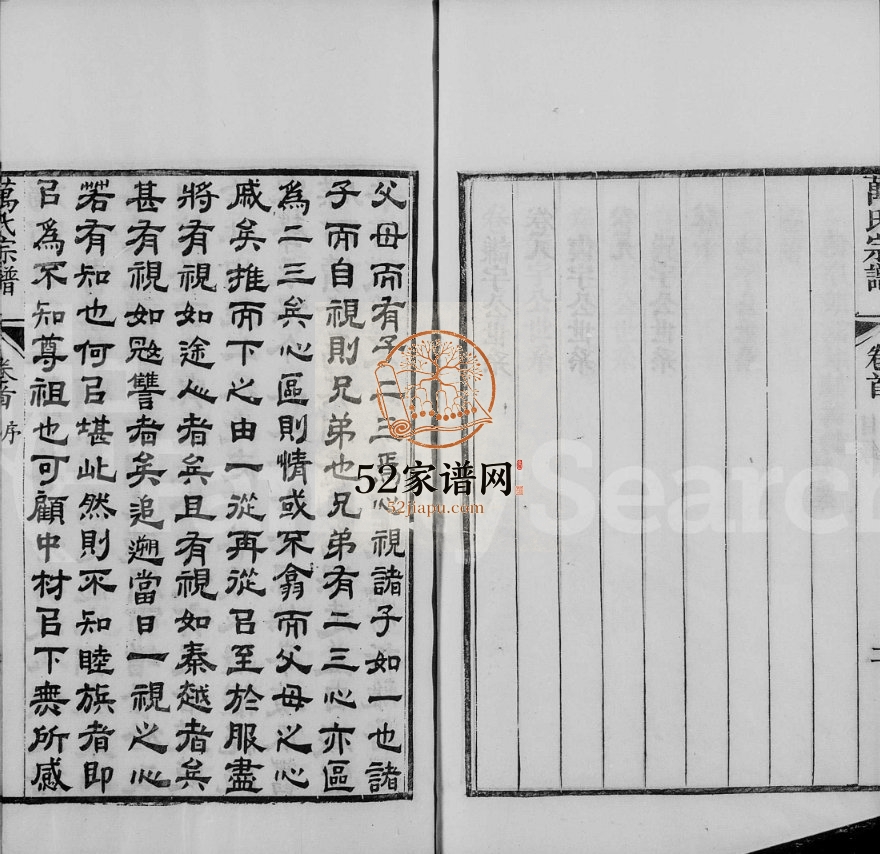 萬氏宗譜
卷首
二
父母而有子二三焉心視諸子如一也諸
子而自視則兄弟也兄弟有二三心亦區
為二三矣心區則情或不翕而父母之心
戚矣推而下之由一從再從㠯至於服盡
將有視如途人者矣且有視如秦越者矣
甚有視如寇讐者矣追遡當日一視之心
若有知也何㠯堪此然則不知睦族者即
㠯為不知尊祖也可顧中材㠯下無所感
萬氏宗譜
卷首
序
52家谱网
52jiapu.com